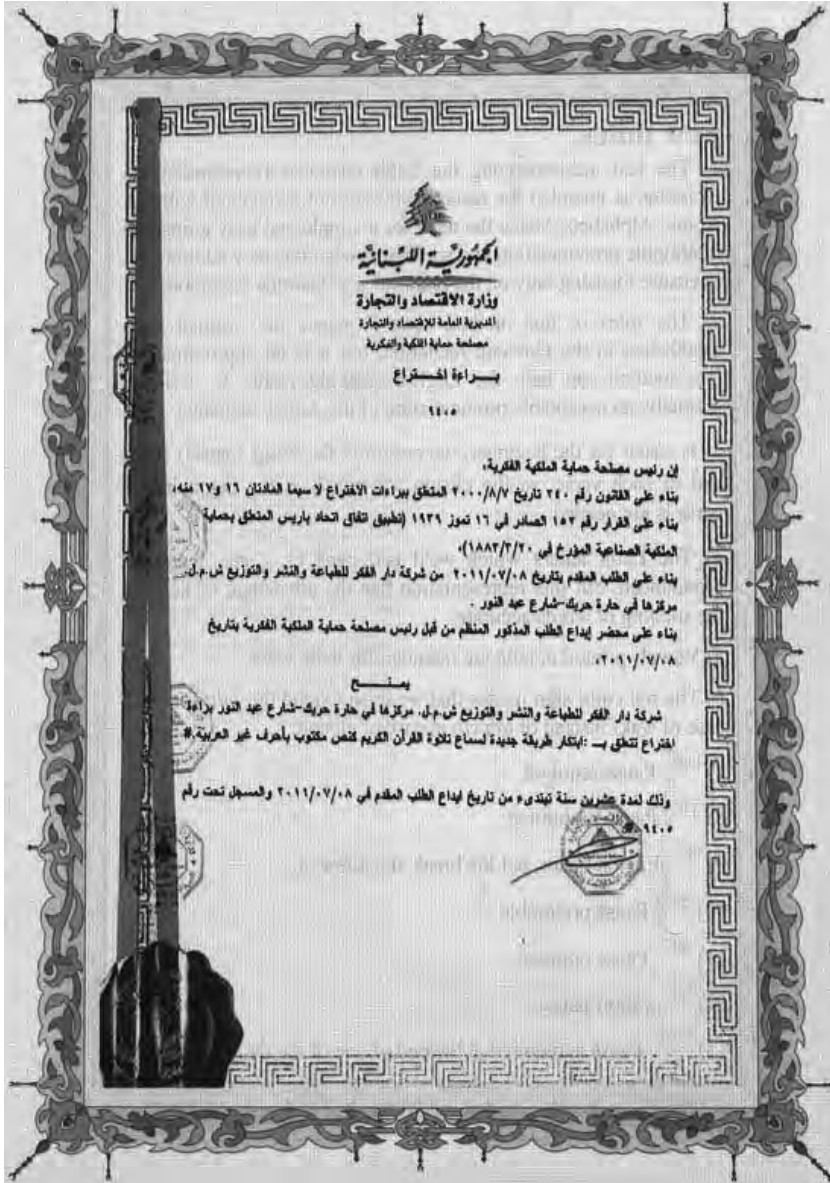 الجمهورية اللبنانية
وزارة الاقتصاد والتجارة
المديرية العامة للإقتصاد والتجارة
مصلحة حماية الملكية والفكرية
بـــراءة اخـتراع
٩٤٠٥
إن رئيس مصلحة حماية الملكية الفكرية،
بناء على القانون رقم ٢٤٠ تاريخ ٢٠٠٠/٨/٧ المتعلق ببراءات الاختراع لا سيما المادتان ١٦ و١٧ منه،
بناء على القرار رقم ١٥٢ الصادر في ١٦ تموز ١٩٣٩ (تطبيق اتفاق اتحاد باريس المتعلق بحماية
الملكية الصناعية المؤرخ في ١٨٨٣/٣/٢٠)،
بناء على الطلب المقدم بتاريخ ٢٠١١/٠٧/٠٨ من شركة دار الفكر للطباعة والنشر والتوزيع ش.م.ل.
مركزها في حارة حريك-شارع عبد النور .
بناء على محضر إيداع الطلب المذكور المنظم من قبل رئيس مصلحة حماية الملكية الفكرية بتاريخ
٢٠١١/٠٧/٠٨،
يمنـــــح
شركة دار الفكر للطباعة والنشر والتوزيع ش.م.ل. مركزها في حارة حريك-شارع عبد النور براءة
اختراع تتعلق بـــ :ابتكار طريقة جديدة لسماع تلاوة القرآن الكريم كنص مكتوب بأحرف غير العربية.#
وذلك لمدة عشرين سنة تبتدىء من تاريخ ايداع الطلب المقدم في ٢٠١١/٠٧/٠٨ والمسجل تحت رقم
٩٤٠٥